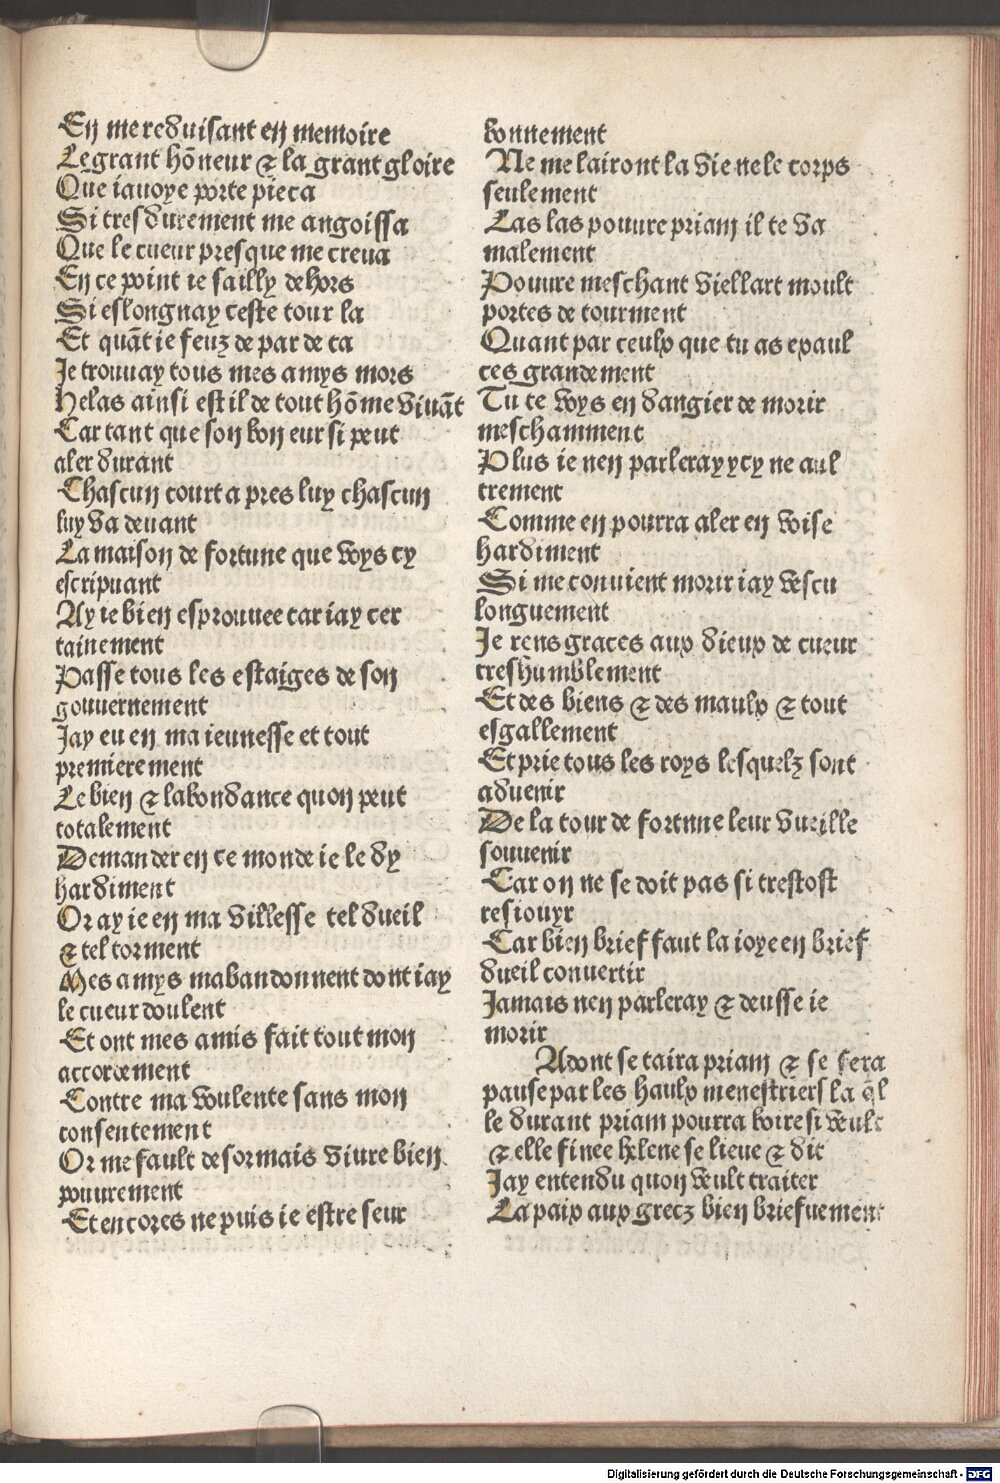 En mereduisant en memoire
Le grant hōneur & la grant gloire
Que iauoye porte pieca
Si tresdurement me angoissa
Que le cueur presque me creua
En ce point ie sailly dehors
Si eslongnay ceste tour la
Et quāt ie feuz de par de ca
Je trouuay tous mes amys mors
Helas ainsi est il de tout hōme viuāt
Car tant que son bon eur si peut
aler durant
Chascun court a pres luy chascun
luy va deuant
La maison de fortune que voys cy
escripuant
Ay ie bien esprouuee car iay cer
tainement
Passe tous les estaiges de son
gouuernement
Jay eu en ma ieunesse et tout
premierement
Le bien & labondance quon peut
totalement
Demander en ce monde ie le dy
hardiment
Or ay ie en ma villesse tel dueil
& tel torment
Mes amys mabandonnent dont iay
le cueur doulent
Et ont mes amis fait tout mon
accordement
Contre ma voulente sans mon
consentement
Or me fault desormais viure bien
pouurement
Et encores ne puis ie estre seur
bonnement
Ne me lairont la vie ne le corps
seulement
Las las pouure priam il te va
malement
Pouure meschant viellart moult
portes de tourment
Quant par ceulx que tu as epaul
ces grandement
Tu te voys en dangier de morir
meschamment
Plus ie nen parleray ycy ne aul
trement
Comme en pourra aler en voise
hardiment
Si me conuient morir iay vescu
longuement
Je rens graces aux dieux de cueur
treshumblement
Et des biens & des maulx & tout
esgallement
Et prie tous les roys lesquelz sont
aduenir
De la tour de fortnne leur vueille
souuenir
Car on ne se doit pas si trestost
resiouyr
Car bien brief faut la ioye en brief
dueil conuertir
Jamais nen parleray & deusse ie
morir
Adont se taira priam & se fera
pause par les haulx menestriers la q̄l
le durant priam pourra boire si veult
& elle finee helene se lieue & dit
Jay entendu quon veult traiter
La paix aux grecz bien briefuement
Digitalisierung gefördert durch die Deutsche Forschungsgemeinschaft - DFG